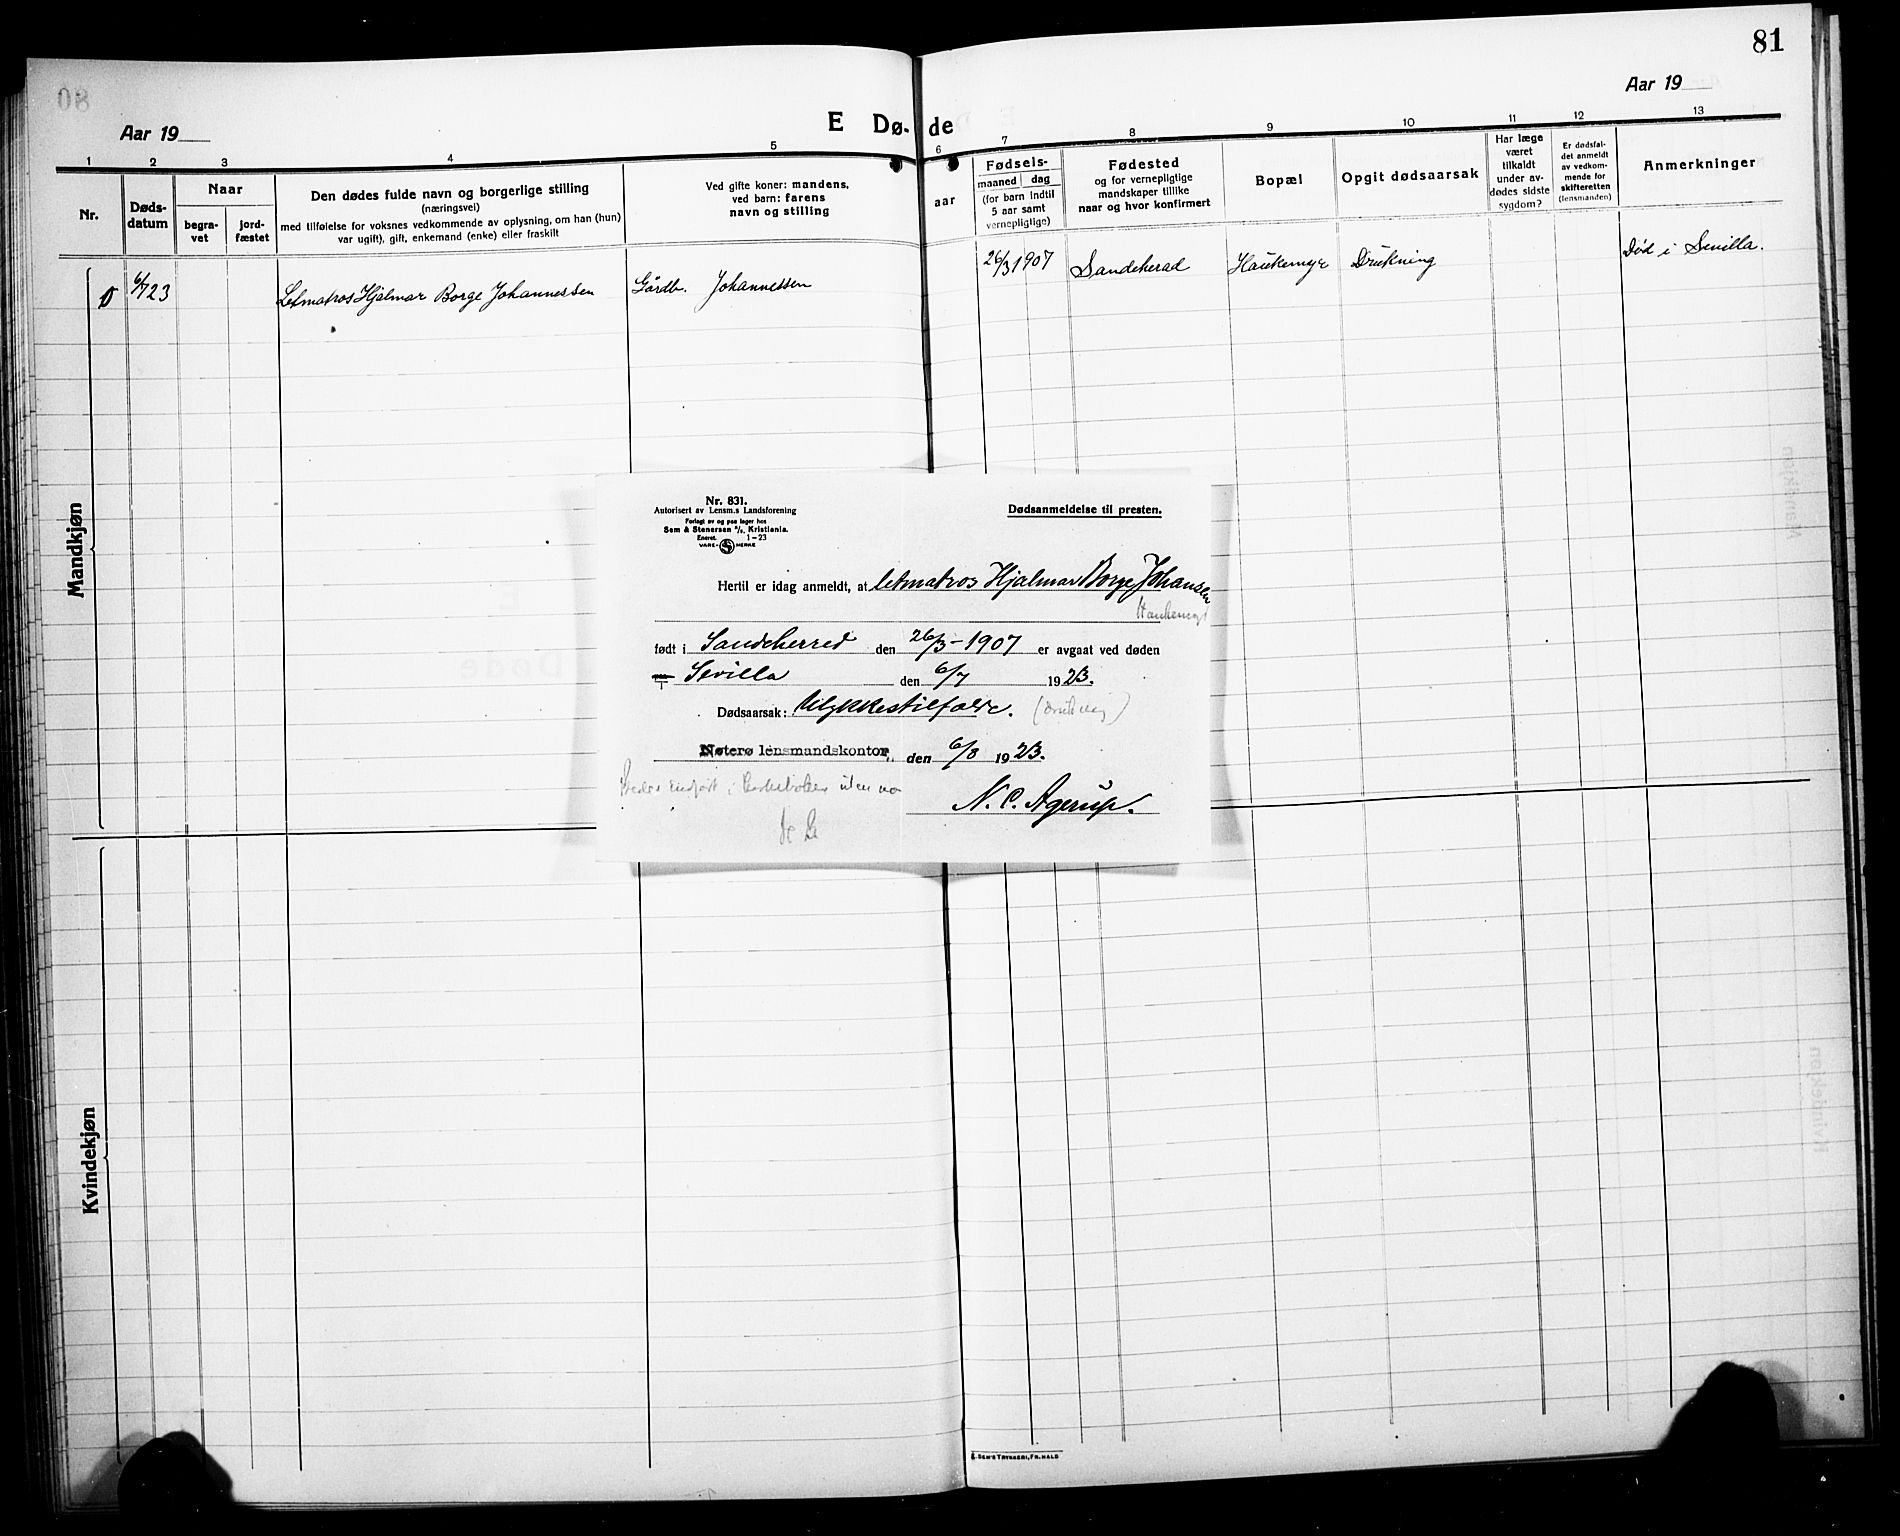 81
Aar 19
Aar 19
E Dø- de
1 2 3 4 5 6 7 8 9 10 11 12 13
Nr.
Døds-
datum
Naar
begra-
vet
jord-
fæstet
Den dødes fulde navn og borgerlige stilling
(næringsvei)
med tilføielse for voksnes vedkommende av oplysning, om han (hun)
var ugift), gift, enkemand (enke) eller fraskilt
Ved gifte koner: mandens,
ved barn: farens
navn og stilling
aar
Fødsels-
maaned dag
(for barn indtil
5 aar samt
vernepligtige)
Fødested
og for vernepligtige
mandskaper tillike
naar og hvor konfirmert
Bopæl
Opgit dødsaarsak
Har læge
været
tilkaldt
under av-
dødes sidste
sygdom?
Er dødsfal-
det anmeldt
av vedkom-
mende for
skifteretten
(lensmanden)
Anmerkninger
Mandkjøn
0 6/7 23 Letmatros Hjalmar Borge Johannessen Gårdb. Johannessen 26/3 1907 Sandeherad Haukemyr Drukning Død i Sevilla.
Nr. 831.
Autorisert av Lensm.s Landsforening
Forlagt av og paa lager hos
Sem & Stenersen A/S. Kristiania.
Eneret. 1-23
VARE- MERKE
Dødsanmeldelse til presten.
Hertil er idag anmeldt, at letmatros Hjalmar Borge Johansen
født i Sandeherred den 26/3-1907 er avgaat ved døden
i Sevilla den 6/7 1923.
Dødsaarsak: Ulykkestilfælde. (drukning)
Nøterø lensmandskontor, den 6/8 1923.
N. C. Agerup.
Kvindekjøn
SEM'S TRYKKERI, FR.HALD